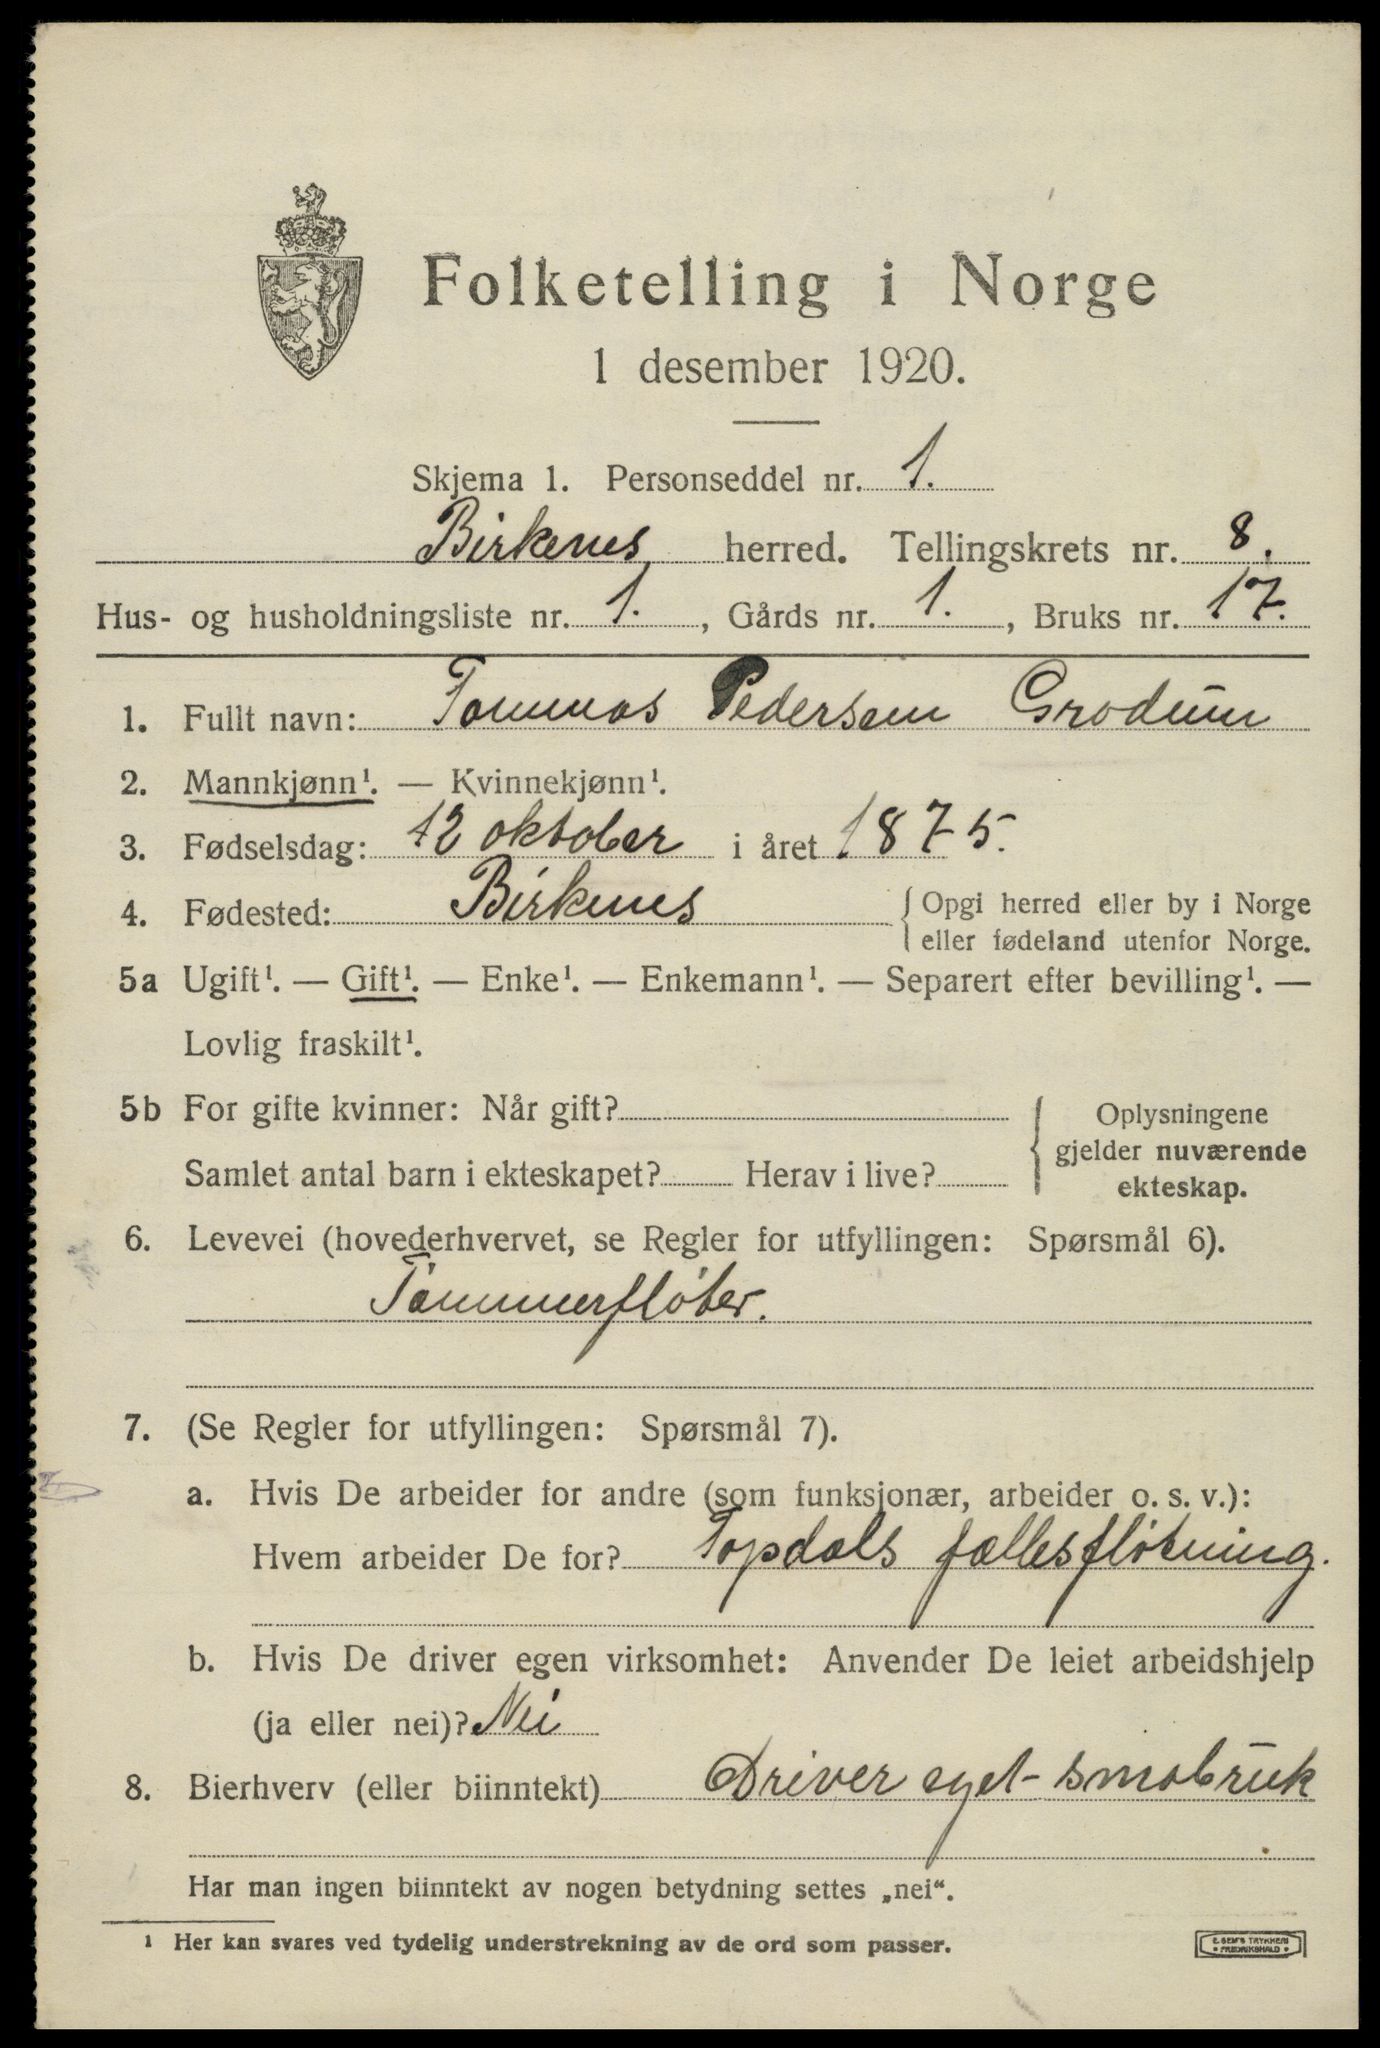 Folketelling i Norge
1 desember 1920.
Skjema 1. Personseddel nr. 1.
Birkenes herred. Tellingskrets nr. 8.
Hus- og husholdningsliste nr. 1., Gårds nr. 1., Bruks nr. 17.
1. Fullt navn: Tommas Pedersen Grodum
2. Mannkjønn¹. — Kvinnekjønn¹.
3. Fødselsdag: 12 oktober i året 1875.
4. Fødested: Birkenes { Opgi herred eller by i Norge
eller fødeland utenfor Norge.
5a Ugift¹. — Gift¹. — Enke¹. — Enkemann¹. — Separert efter bevilling¹. —
Lovlig fraskilt¹.
5b For gifte kvinner: Når gift?
Samlet antal barn i ekteskapet? Herav i live?
{ Oplysningene
gjelder nuværende
ekteskap.
6. Levevei (hovederhvervet, se Regler for utfyllingen: Spørsmål 6).
Tømmerfløter.
7. (Se Regler for utfyllingen: Spørsmål 7).
a. Hvis De arbeider for andre (som funksjonær, arbeider o. s. v.):
Hvem arbeider De for? Topdals fællesfløtning.
b. Hvis De driver egen virksomhet: Anvender De leiet arbeidshjelp
(ja eller nei)? Nei
8. Bierhverv (eller biinntekt) Driver eget smabruk
Har man ingen biinntekt av nogen betydning settes „nei“.
¹ Her kan svares ved tydelig understrekning av de ord som passer.
E. SEM'S TRYKKERI
FREDRIKSHALD